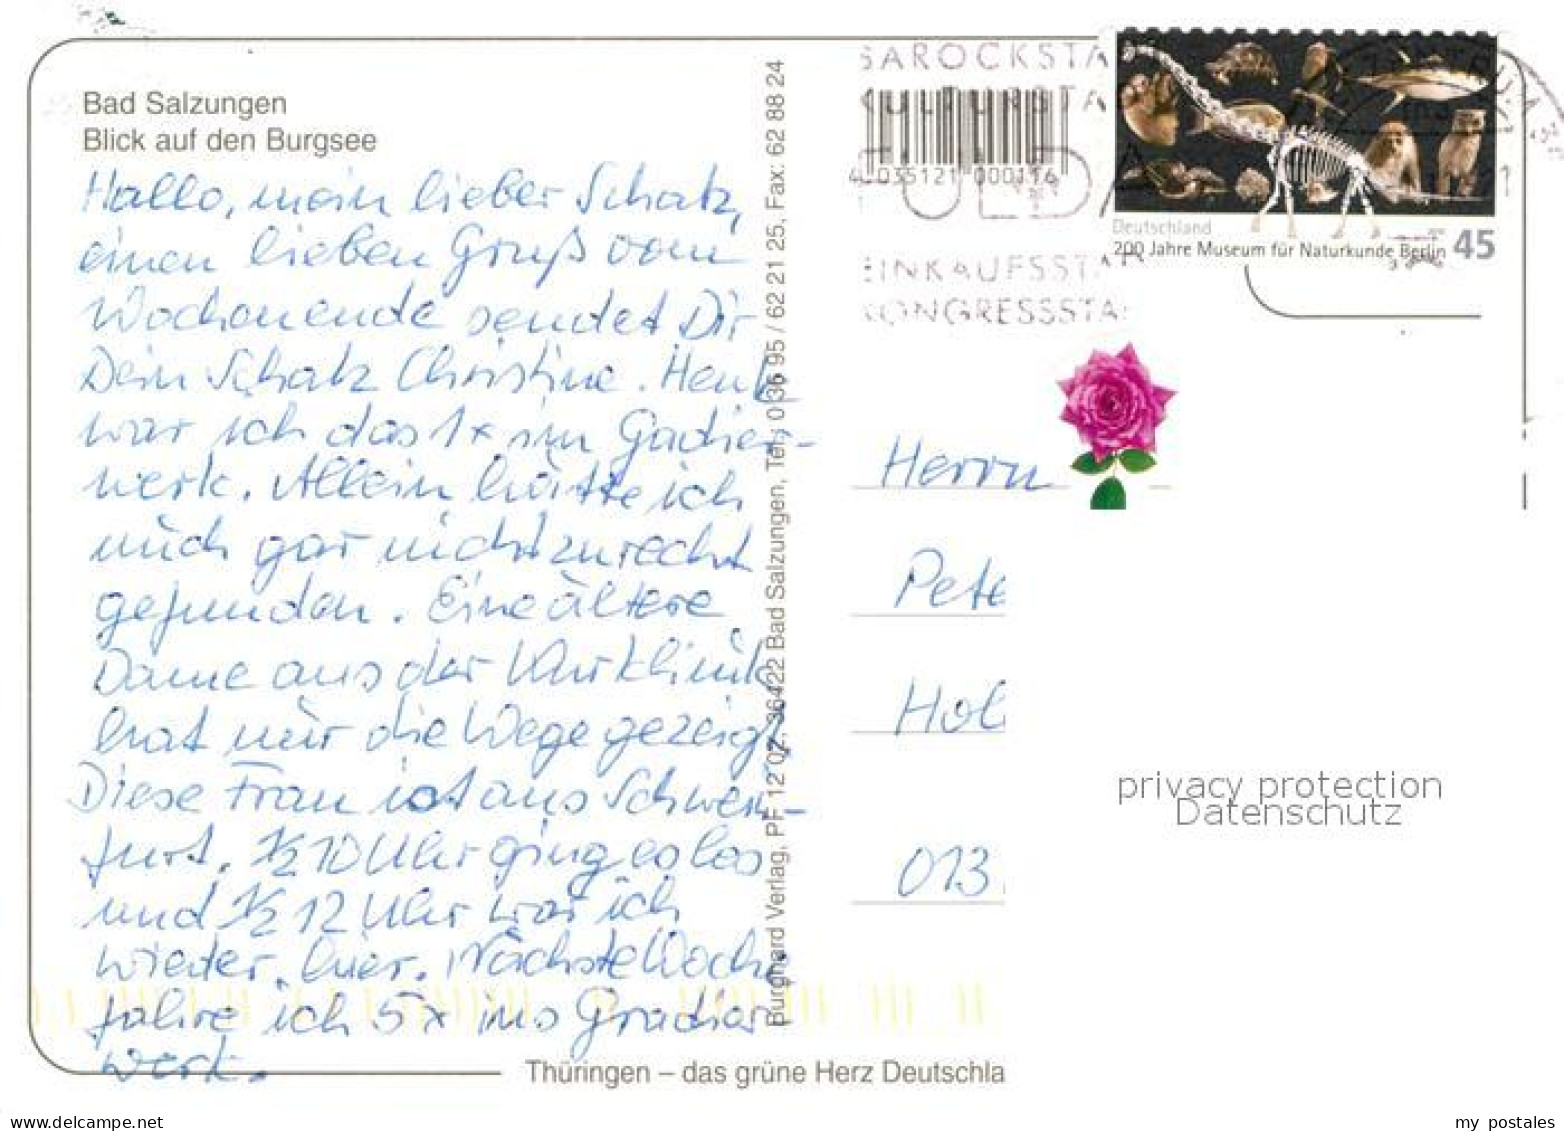 Bad Salzungen
Blick auf den Burgsee
Hallo, mein lieber Schatz,
einen lieben Gruß vom
Wochenende sendet Dir
Dein Schatz Christine. Heute
war ich das 1x im Gadier-
werk. Allein hätte ich
mich gar nicht zurecht
gefunden. Eine ältere
Dame aus der Kurklinik
hat mir die Wege gezeigt.
Diese Frau ist aus Schwein-
furt. ½ 10 Uhr ging es los
und ½ 12 Uhr war ich
wieder hier. Nächste Woche
fahre ich 5x ins Gradier
werk.
Burghard Verlag, PF 12 02, 36422 Bad Salzungen, Tel.: 0 36 95 / 62 21 25, Fax: 62 88 24
Thüringen – das grüne Herz Deutschla
BAROCKSTA
KULTURSTA
FULDA
EINKAUFSSTA
KONGRESSSTA
4 035121 000116
Deutschland
200 Jahre Museum für Naturkunde Berlin 45
Herrn
Pete
Hol
013
privacy protection
Datenschutz
www.delcampe.net
my_postales